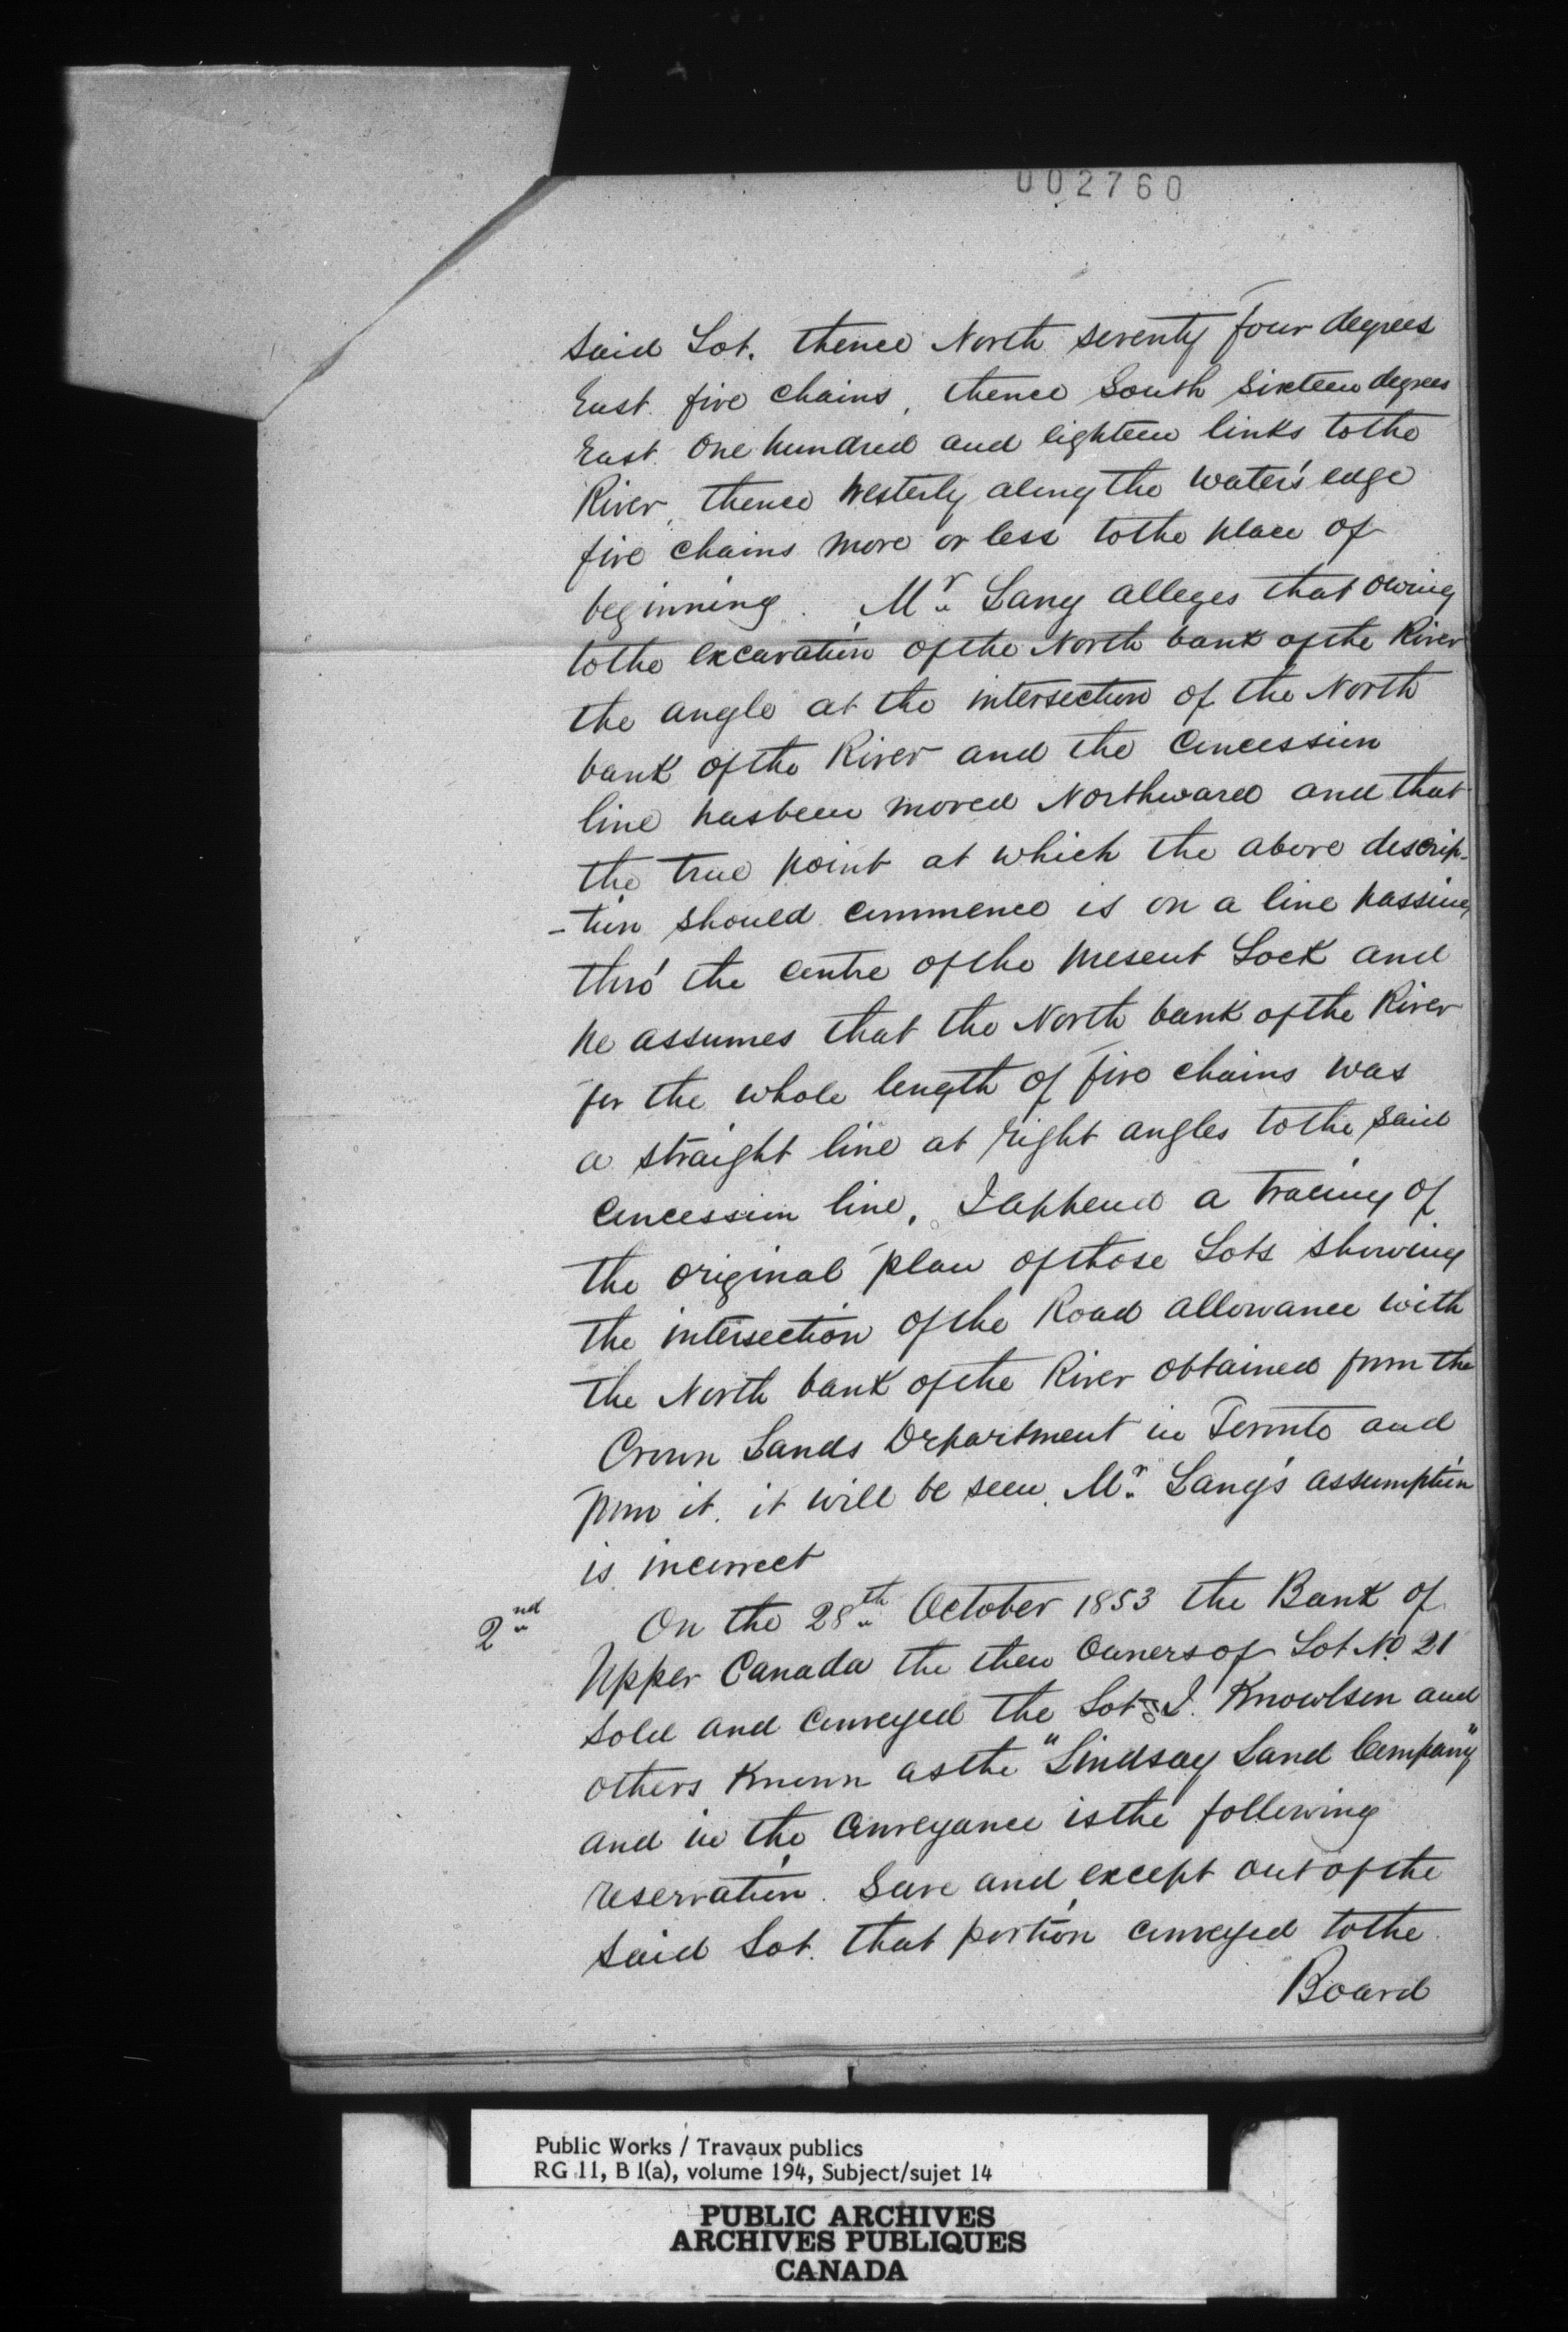 002760
said Lot. thence North seventy four degrees
East five chains, thence South sixteen degrees
East One hundred and eighteen links to the
River, thence Westerly along the water's edge
five chains more or less to the place of
beginning. Mr. Lang alleges that owing
to the excavation of the North bank of the River
the angle at the intersection of the North
bank of the River and the Concession
line has been moved Northward and that
the true point at which the above descrip-
-tion should commence is on a line passing
thro' the centre of the present Lock and
he assumes that the North bank of the River
for the whole length of five chains was
a straight line at right angles to the said
Concession line, I append a tracing of
the original plan of those Lots showing
the intersection of the Road allowance with
the North bank of the River obtained from the
Crown Lands Department in Toronto and
from it, it will be seen Mr. Lang's assumption
is incorrect
2nd On the 28th October 1853 the Bank of
Upper Canada the then Owners of Lot No 21
sold and conveyed the Lot to J. Knowlson and
others known as the "Lindsay Land Company"
and in the Conveyance is the following
reservation. Save and except out of the
said Lot that portion conveyed to the
Board
Public Works / Travaux publics
RG 11, B 1(a), volume 194, Subject/sujet 14
PUBLIC ARCHIVES
ARCHIVES PUBLIQUES
CANADA